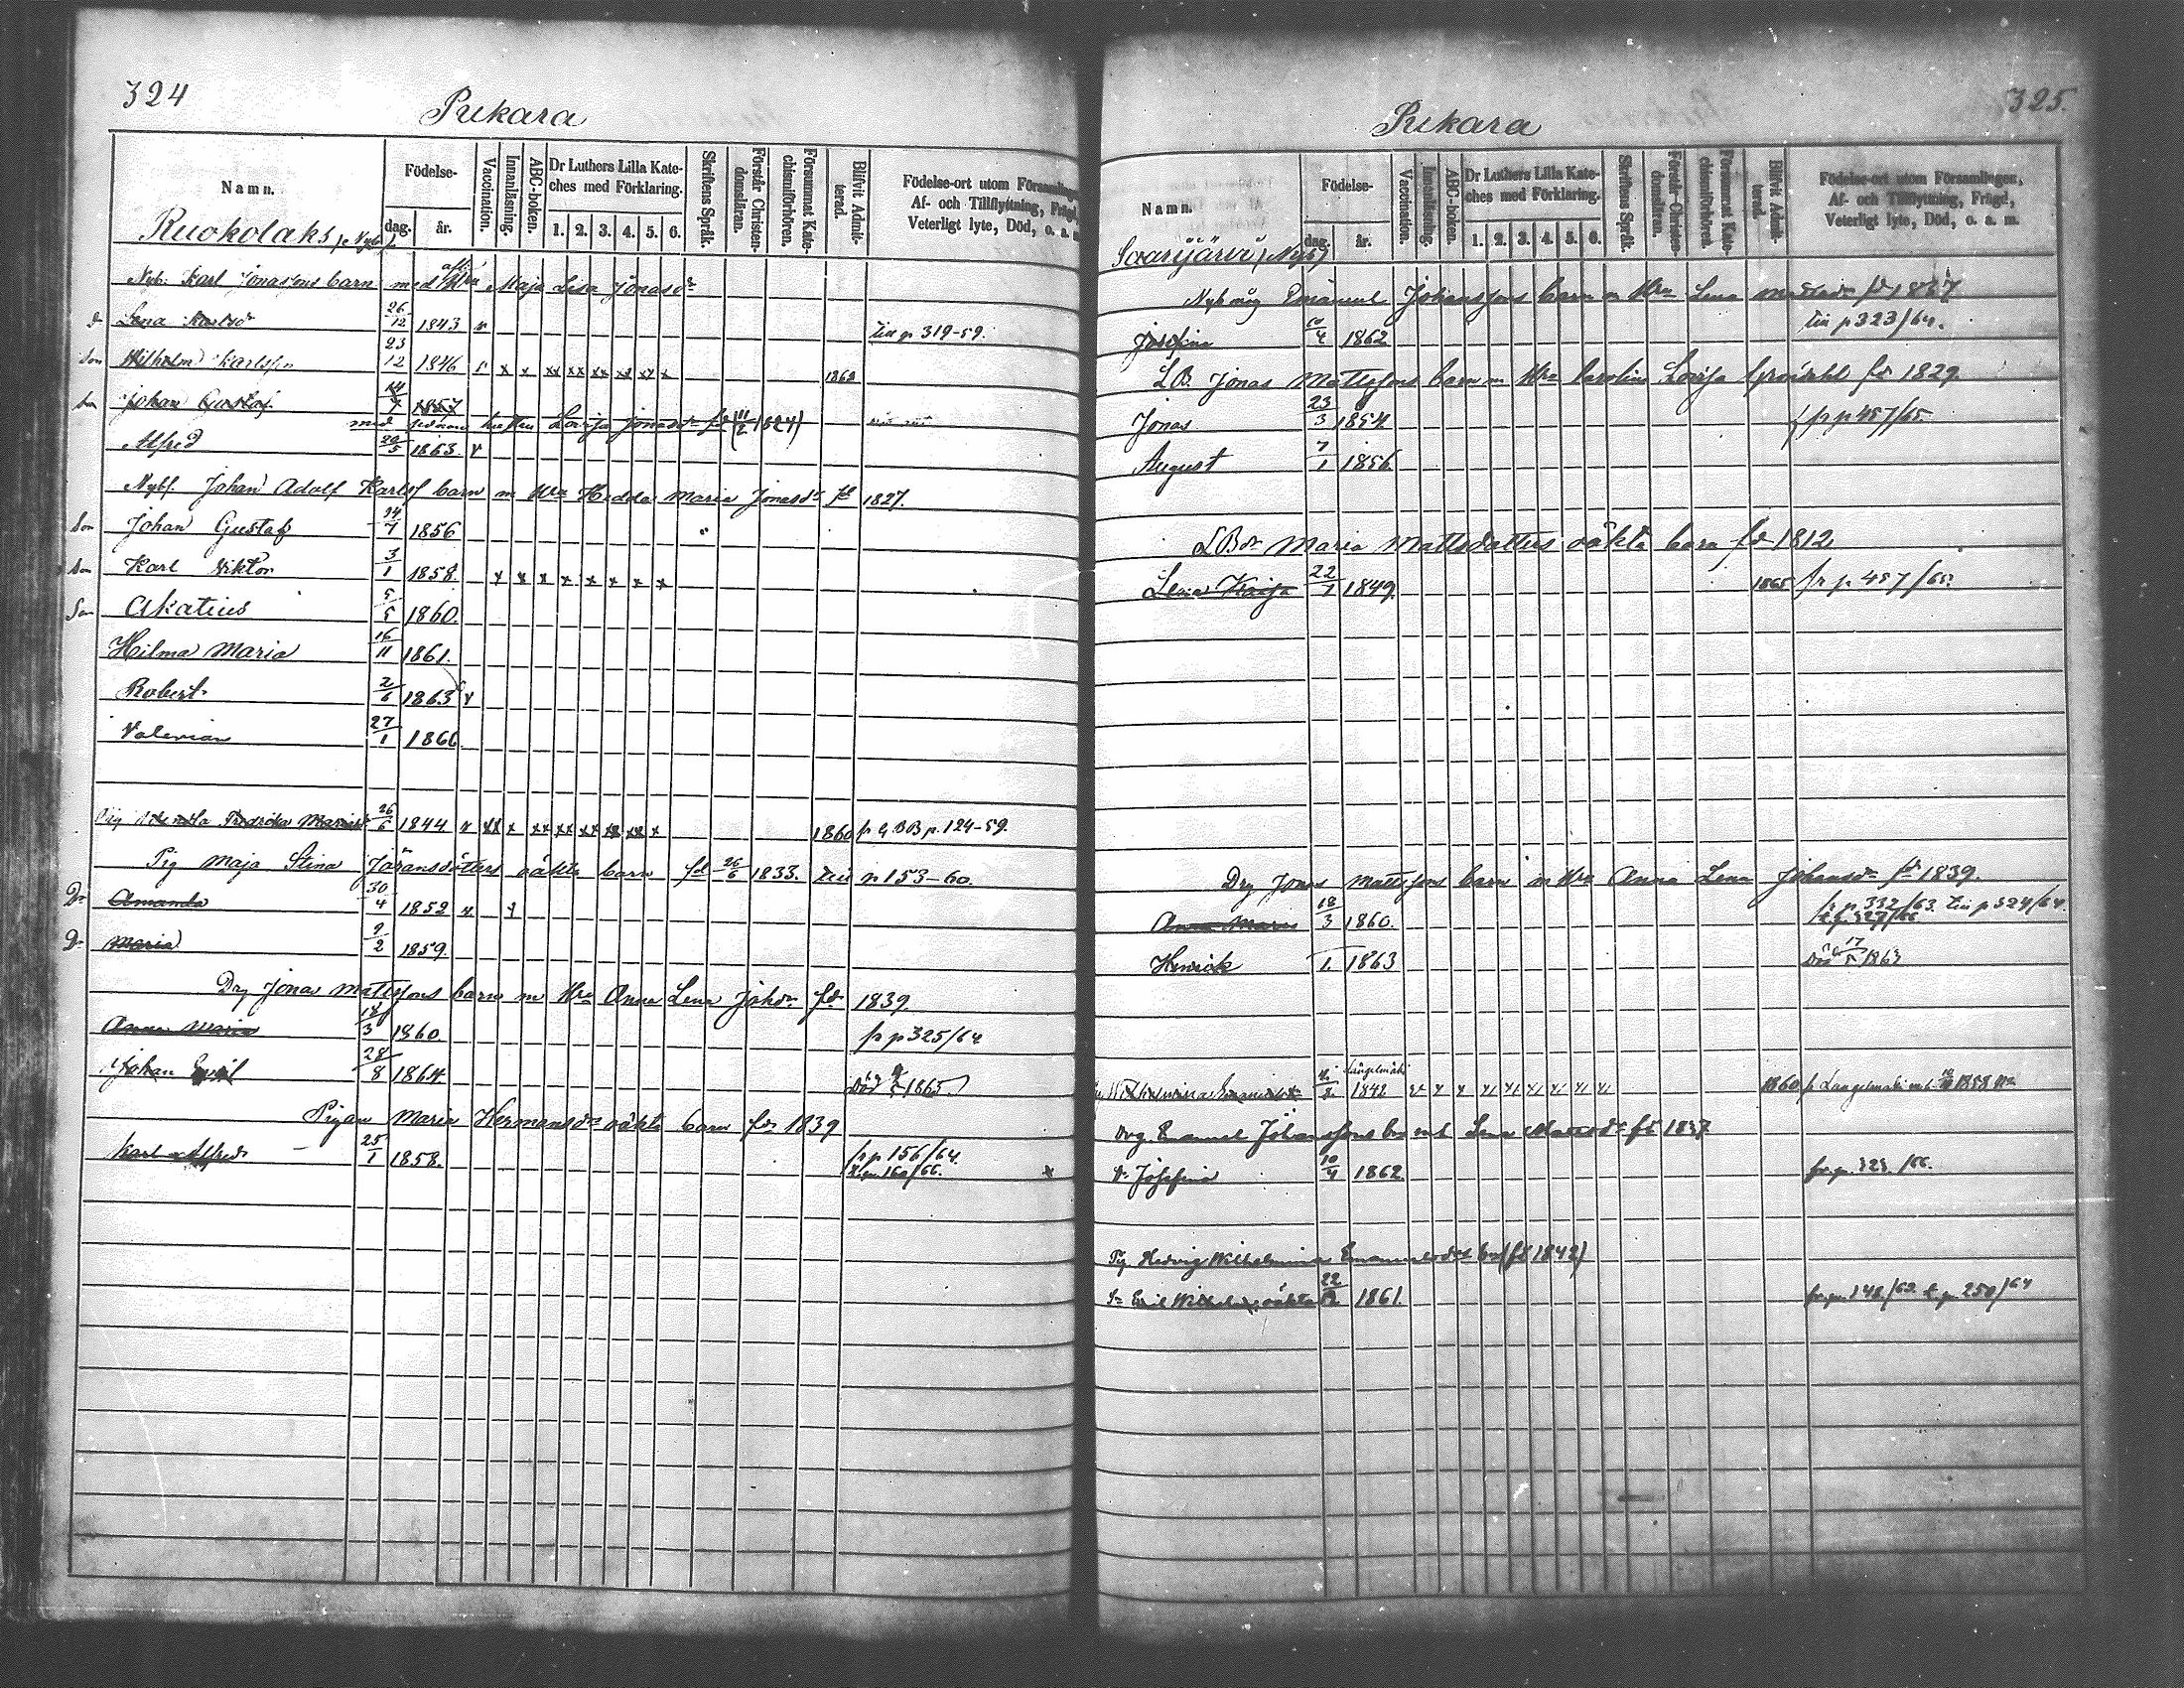 324
Pukara
Namn.
Födelse-
dag. år.
Vaccination.
Innanläsning.
ABC-boken.
Dr Luthers Lilla Kate-
ches med Förklaring.
1. 2. 3. 4. 5. 6.
Skriftens Språk.
Förstår Christen-
domsläran.
Försummat Kate-
chismiförhören.
Blifvit Admit-
terad.
Födelse-ort utom Församlingen
Af- och Tillflyttning, Frägd,
Veterligt lyte, Död, o. a. m.
Ruokolaks (Nyb)
Nyb. Karl Jonassons barn med afl. Hru Maja Lisa Jonasdr
dr Lena Karlsdr 26/12 1843 v till p 319-59.
Son Wilhelm Karlsson 23/12 1846 v x x xx xx xx xx xx x 1862
Son Johan Gustaf 14/7 1857
med sednare hustru Lovisa Jonasdr fd (11/2 1824)
Alfred 20/5 1863 v
Nybf. Johan Adolf Karlss barn m Hru Hedda Maria Jonasdr fd 1827.
Son Johan Gustaf 24/7 1856
Son Karl Viktor 3/1 1858. x x x x x x x x
Son Akatius 5/5 1860.
Hilma Maria 16/11 1861.
Robert 2/6 1863 v
Valerian 27/1 1866.
Fredrika 26/6 1844 v xx x xx xx xx xx xx x 1860 fr G BB p. 124-59.
Pig Maja Stina Jöransdotters oäkta barn fd 26/6 1833. till p 153-60.
Dr Amanda 30/4 1852 v x
Dr Maria 9/2 1859.
Drg Jonas Mattssons barn m Hru Anna Lena Johdr fdr 1839.
Anna Maria 18/3 1860. fr p 325/64
Johan Emil 28/8 1864 Död 1865
Pigan Maria Hermansdrs oäkta barn fdr 1839
Karl Alfred 25/1 1858. fr p 156/64.
t. p. 160/66. x
325.
Pukara
Namn.
Födelse-
dag. år.
Vaccination.
Innanläsning.
ABC-boken.
Dr Luthers Lilla Kate-
ches med Förklaring.
1. 2. 3. 4. 5. 6.
Skriftens Språk.
Förstår Christen-
domsläran.
Försummat Kate-
chismiförhören.
Blifvit Admit-
terad.
Födelse-ort utom Församlingen,
Af- och Tillflyttning, Frägd,
Veterligt lyte, Död, o. a. m.
Saarijärvi (Nyb)
Emanuel Johanssons barn m Hru Lena Mattsdr fd 1837
Josefina 10/4 1862 till p 323/64.
LB. Jonas Mattssons barn m Hru Carolina Lovisa fdr 1829.
Jonas 23/3 1854 fr p 457/65.
August 7/1 1856
LBdr Maria Mattsdotters oäkta barn fdr 1812
Lena Kaisa 22/1 1849. 1865 fr p 457/65.
Drg Jonas Mattssons barn m Hru Anna Lena Johansdr fd 1839.
Anna Maria 18/3 1860. fr p 332/63. till p 324/64.
Henrik 1/1 1863 Död 17/5 1863
Wilhelmina Emanuelsdr 1842 Längelmäki 1860 fr Längelmäki 1858
Drg. Emanuel Johanssons barn m h Lena Mattsdr fd 1837
dr Josefina 10/4 1862. fr. p. 323/66.
Pig Hedvig Wilhelmina Emanuelsdrs barn (fd 1842)
Sn Emil Wilhelm, oäkta 22/12 1861. fr. p. 148/62 t. p 250/64